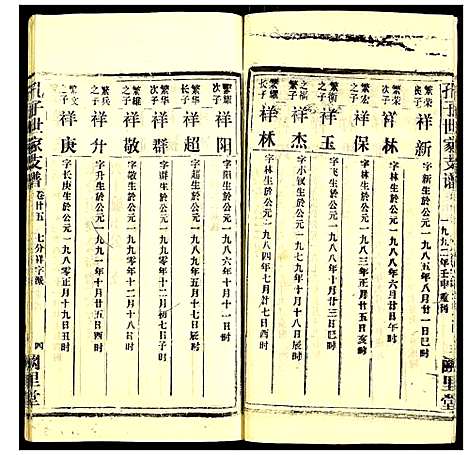 孔子世家支譜
一九九二年壬申
闕里堂
繁榮長子 祥新 字新生於公元一九八五年八月廿一日辰時
繁榮次子 祥林 字林生於公元一九八八年六月廿日午時
繁宏之子 祥保 字林生於公元一九八三年正月廿五日亥時
之子 祥玉 字飞生於公元一九八一年八月廿三日巳時
之子 祥杰 生於公元一九八九年十月十六日
繁耀長子 祥林 字林生於公元一九八四年七月廿七日酉時
繁耀次子 祥陽 字阳生於公元一九八六年十月十一日子時
繁华长子 祥超 字超生於公元一九八九年五月十七日辰時
繁华次子 祥群 字群生於公元一九九〇年十二月初七日子时
繁雄之子 祥敬 字敬生於公元一九九〇年十二月十八日时
繁兵之子 祥升 字升生於公元一九九一年十月廿五日丑时
繁文之子 祥庚 字长庚生於公元一九八〇年正月十九日丑时
孔子世家支譜
卷廿五
七分祥字派
四
闕里堂